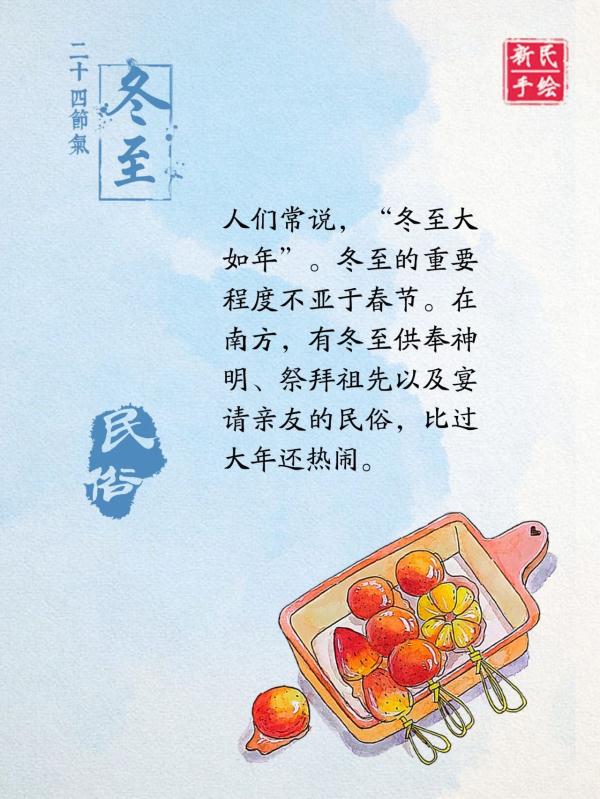 二十四節氣
冬至
新民
手绘
人们常说，“冬至大
如年”。冬至的重要
程度不亚于春节。在
南方，有冬至供奉神
明、祭拜祖先以及宴
请亲友的民俗，比过
大年还热闹。
民俗